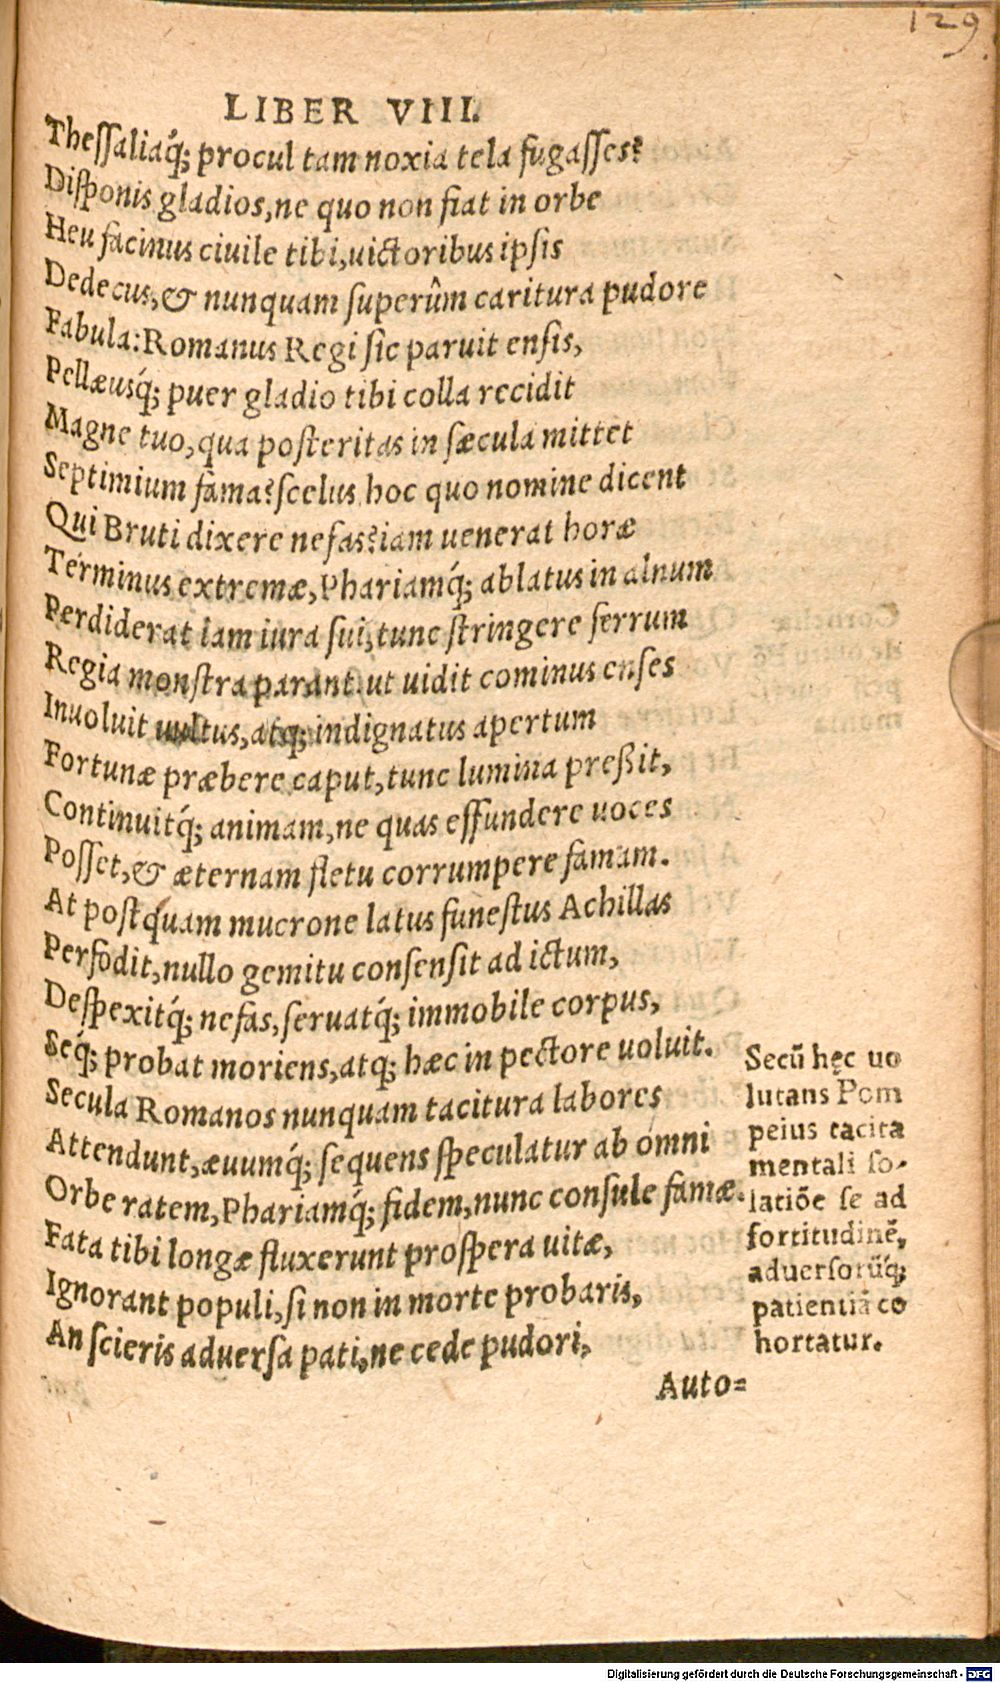 129
LIBER VIII.
Theſſaliaq́; procul tam noxia tela fugaſſes?
Diſponis gladios, ne quo non fiat in orbe
Heu facinus ciuile tibi, uictoribus ipſis
Dedecus, & nunquam ſuperûm caritura pudore
Fabula: Romanus Regi ſic paruit enſis,
Pellæusq́; puer gladio tibi colla recidit
Magne tuo, qua poſteritas in ſæcula mittet
Septimium fama? ſcelus hoc quo nomine dicent
Qui Bruti dixere nefas? iam uenerat horæ
Términus extremæ, Phariamq́; ablatus in alnum
Perdiderat iam iura ſui, tunc ſtringere ferrum
Regia monſtra parant. ut uidit cominus enſes
Inuoluit uultus, atq; indignatus apertum
Fortunæ præbere caput, tunc lumina preßit,
Continuitq́; animam, ne quas effundere uoces
Poſſet, & æternam fletu corrumpere famam.
At poſtquam mucrone latus funeſtus Achillas
Perfodit, nullo gemitu conſenſit ad ictum,
Deſpexitq́; nefas, ſeruatq́; immobile corpus,
Seq́; probat moriens, atq; hæc in pectore uoluit.
Secula Romanos nunquam tacitura labores
Attendunt, æuumq́; ſequens ſpeculatur ab omni
Orbe ratem, Phariamq́; fidem, nunc conſule famæ.
Fata tibi longæ fluxerunt proſpera uitæ,
Ignorant populi, ſi non in morte probaris,
An ſcieris aduerſa pati, ne cede pudori,
Auto=
Secũ hęc uo
lutans Pom
peius tacita
mentali ſo-
latiõe ſe ad
fortitudinẽ,
aduerſorũq́;
patientiã co
hortatur.
Digitalisierung gefördert durch die Deutsche Forschungsgemeinschaft - DFG